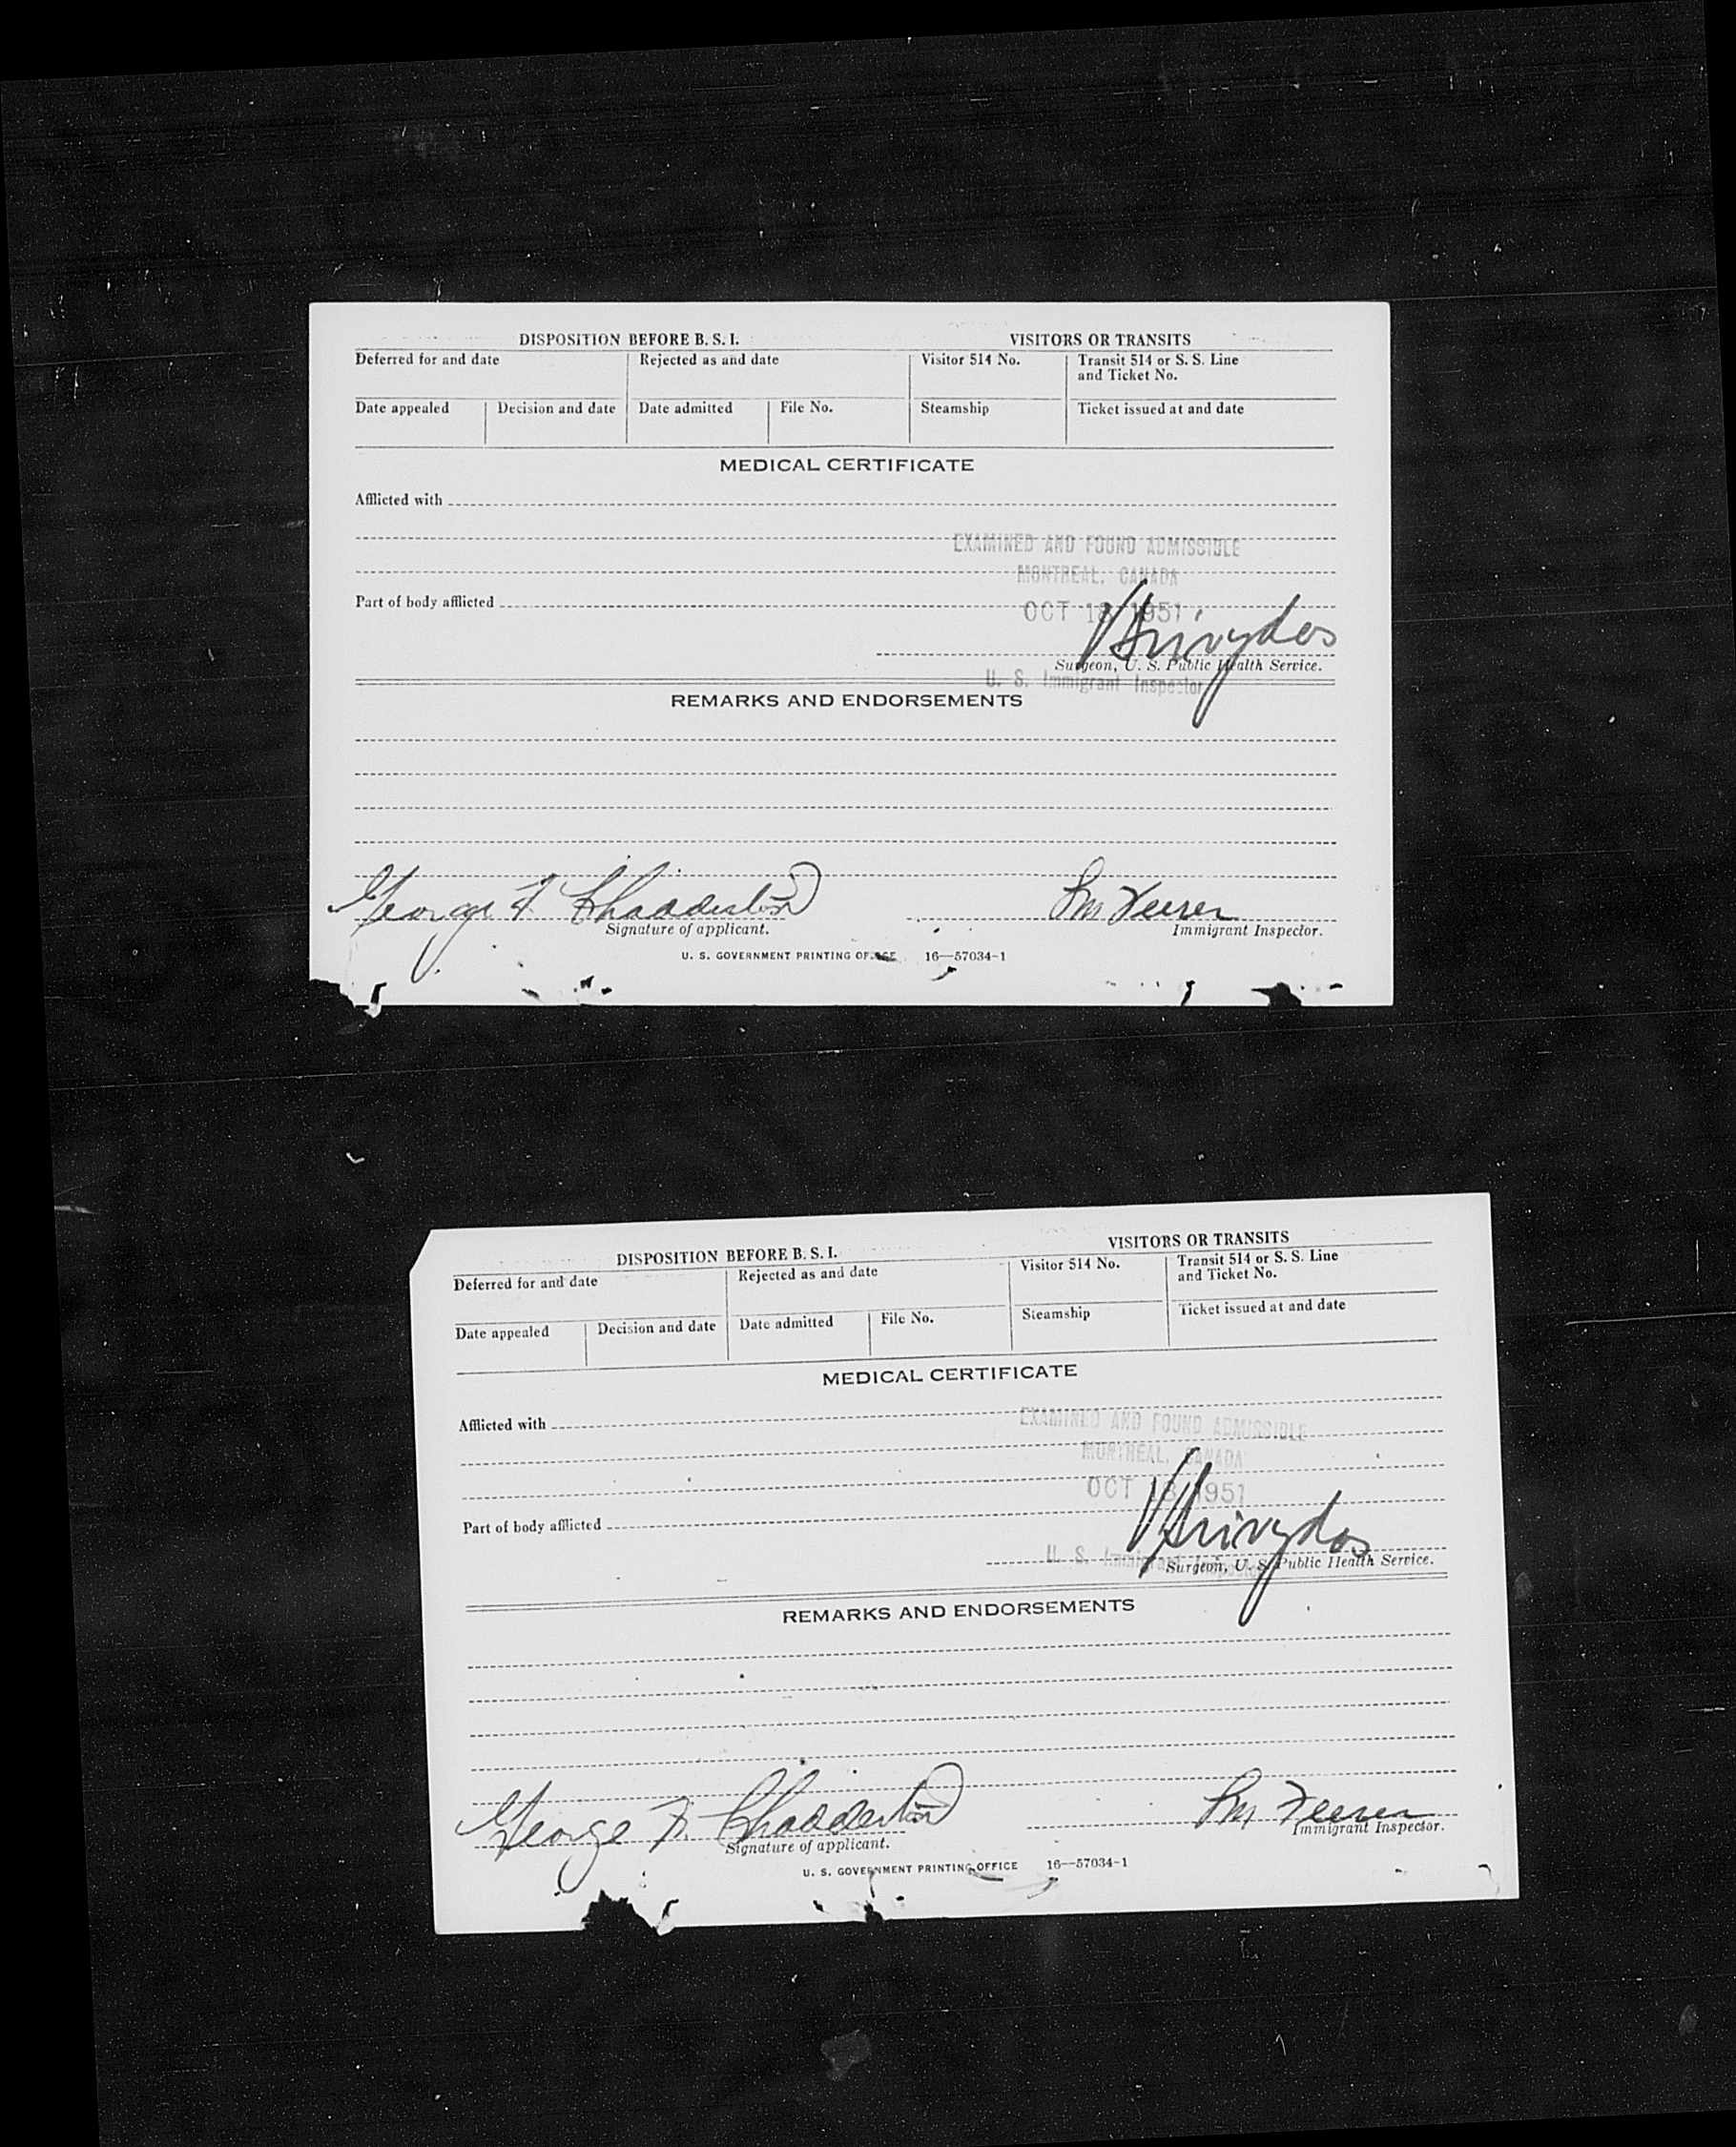 DISPOSITION BEFORE B. S. I. VISITORS OR TRANSITS
Deferred for and date Rejected as and date Visitor 514 No. Transit 514 or S. S. Line
and Ticket No.
Date appealed Decision and date Date admitted File No. Steamship Ticket issued at and date
MEDICAL CERTIFICATE
Afflicted with
EXAMINED AND FOUND ADMISSIBLE
MONTREAL, CANADA
Part of body afflicted
OCT 18 1951
Surgeon, U. S. Public Health Service.
U. S. Immigrant Inspector
REMARKS AND ENDORSEMENTS
George F Chadderton
Signature of applicant. Immigrant Inspector.
U. S. GOVERNMENT PRINTING OFFICE 16—57034-1
DISPOSITION BEFORE B. S. I. VISITORS OR TRANSITS
Deferred for and date Rejected as and date Visitor 514 No. Transit 514 or S. S. Line
and Ticket No.
Date appealed Decision and date Date admitted File No. Steamship Ticket issued at and date
MEDICAL CERTIFICATE
Afflicted with
EXAMINED AND FOUND ADMISSIBLE
MONTREAL, CANADA
OCT 18 1951
Part of body afflicted
U. S. Immigrant Inspector
Surgeon, U. S. Public Health Service.
REMARKS AND ENDORSEMENTS
George F. Chadderton
Signature of applicant. Immigrant Inspector.
U. S. GOVERNMENT PRINTING OFFICE 16—57034-1